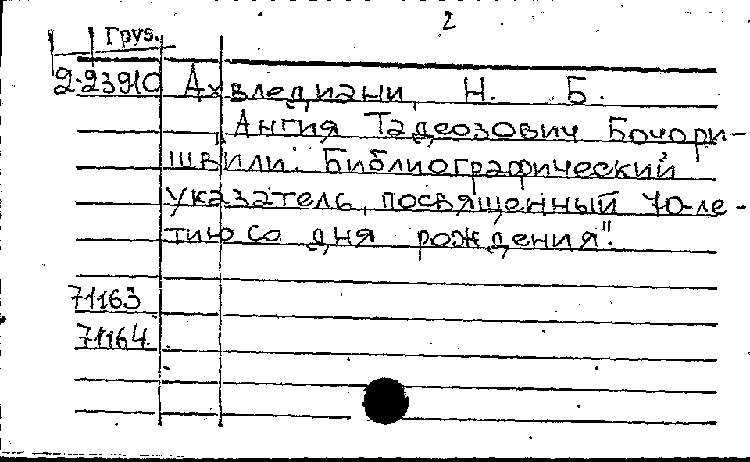 2
Груз.
2-23910 Ахвледиани, Н. Б.
„Ангия Тадеозович Бочори-
швили. Библиографический
указатель, посвященный 70-ле-
тию со дня рождения".
71163
71164